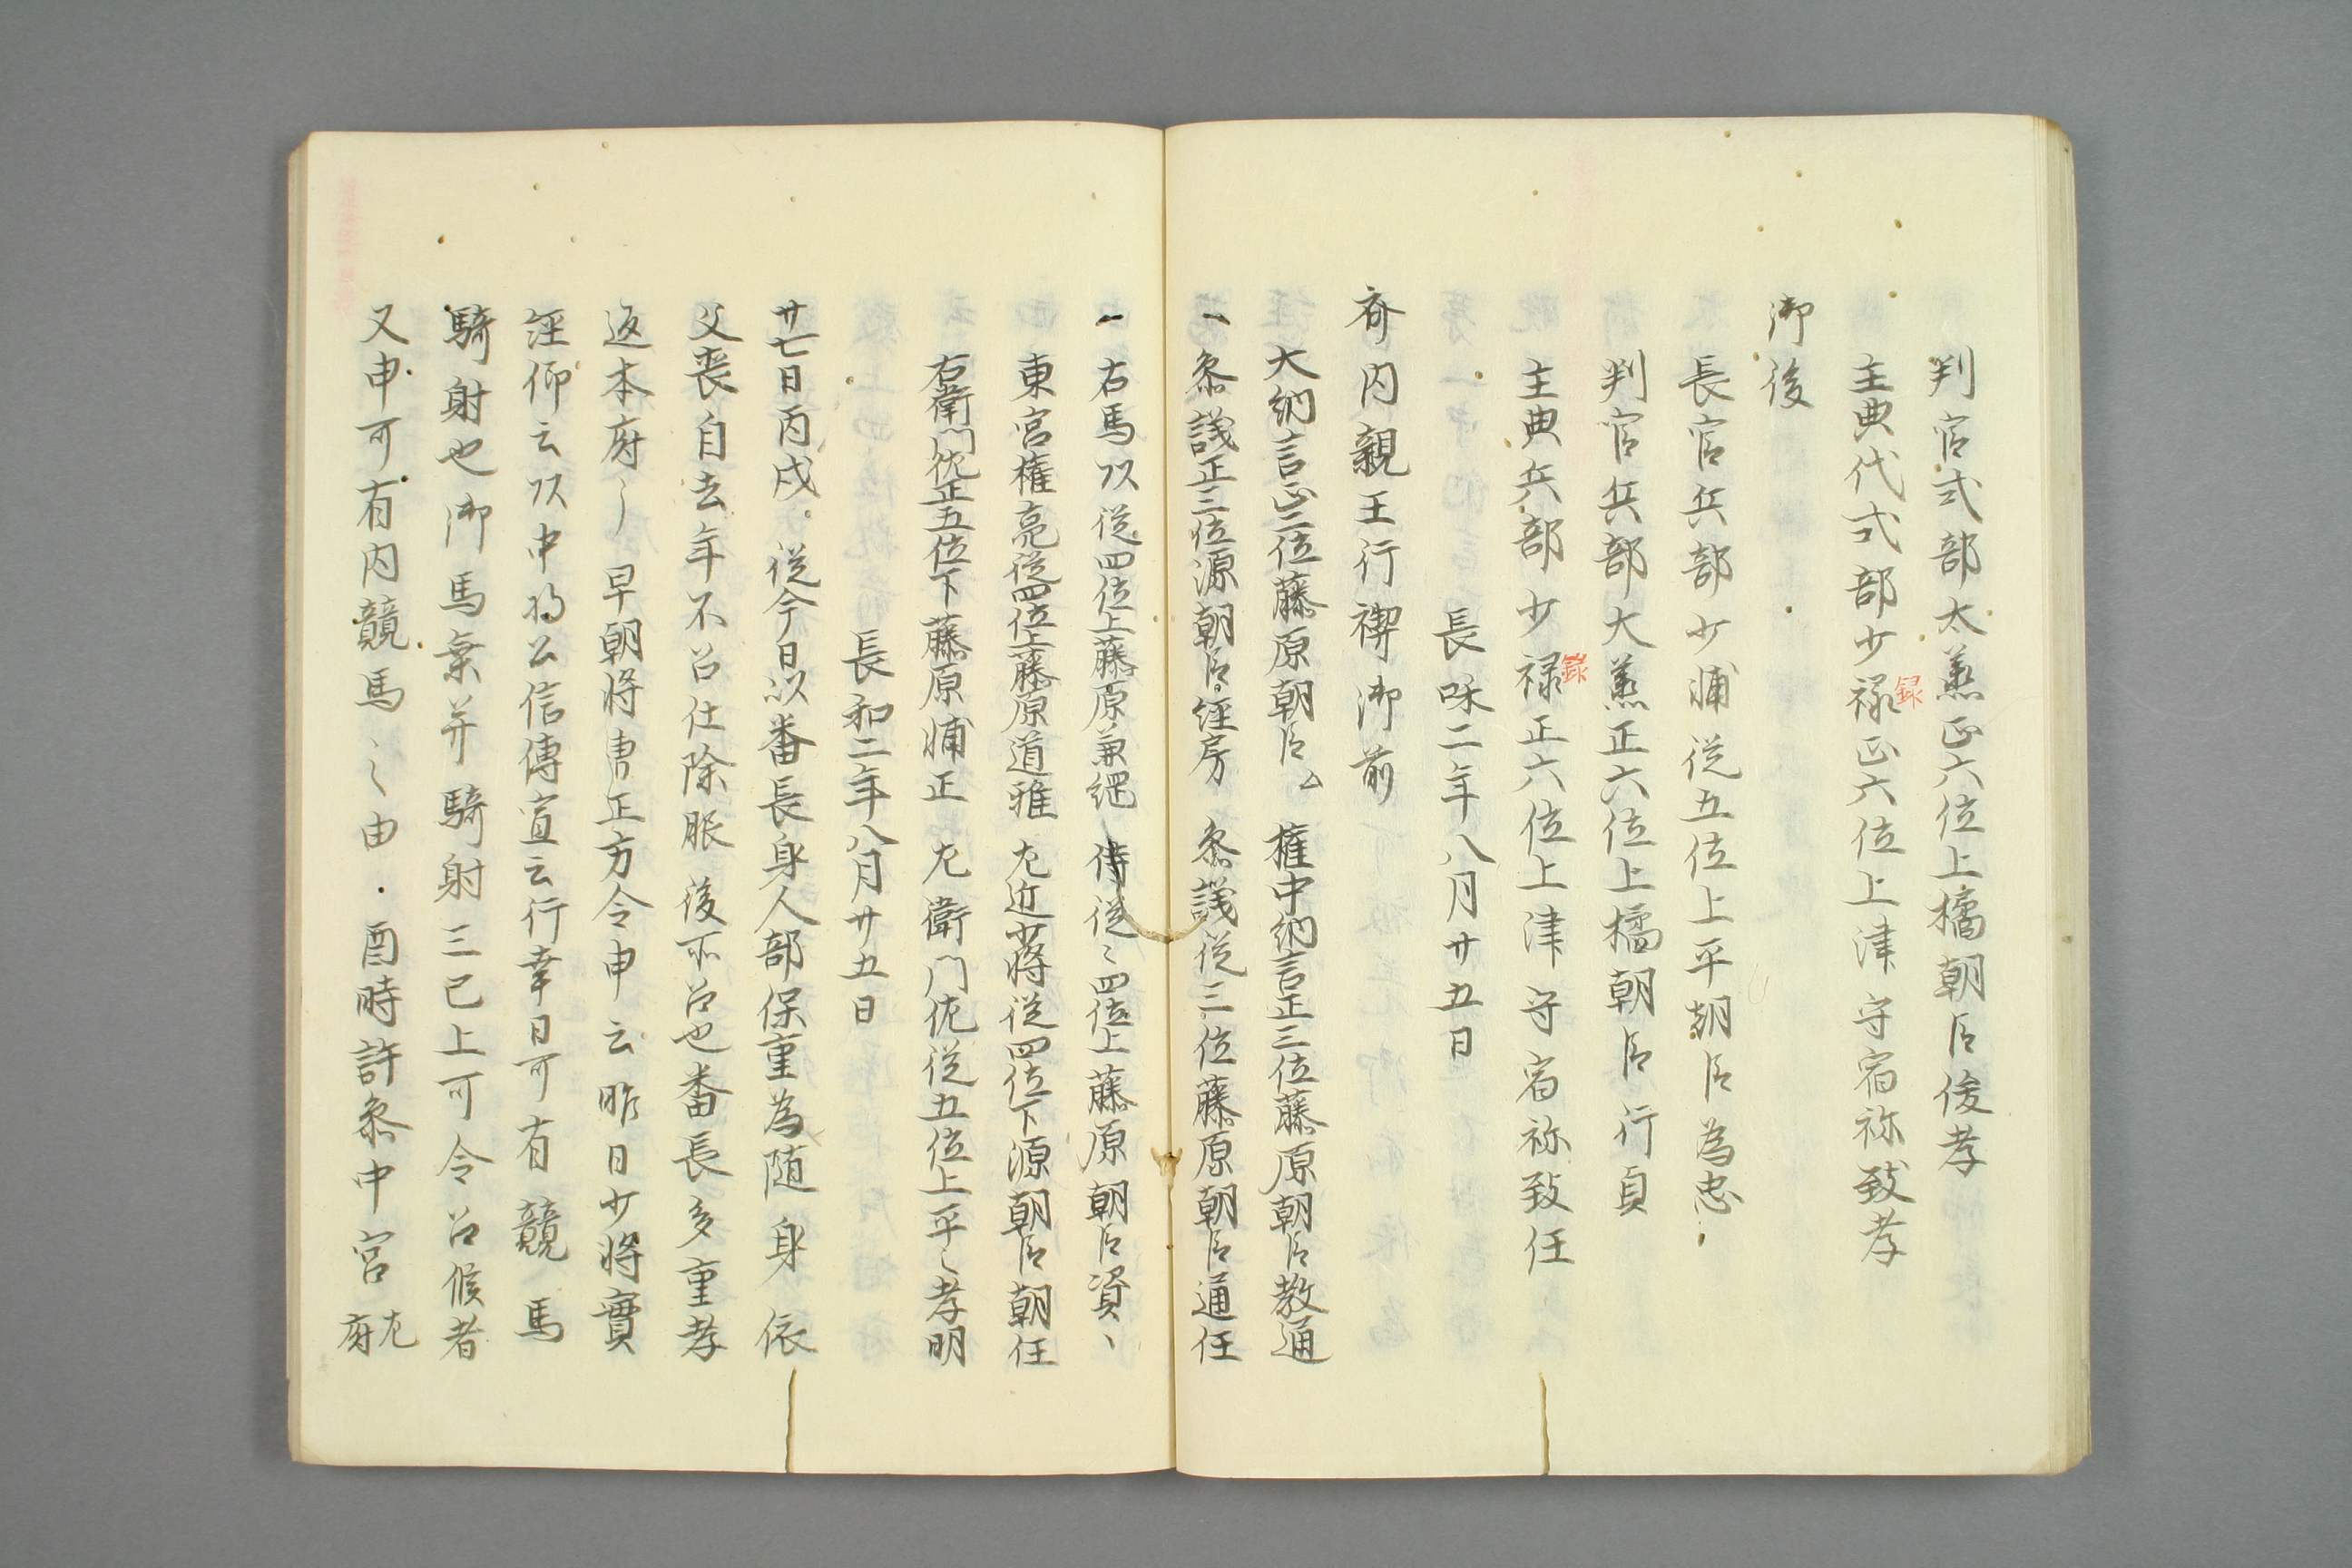 判官式部太烝正六位上橘朝臣俊孝
主典代式部少禄正六位上津守宿祢致孝
録
御後
長官兵部少輔従五位上平朝臣為忠
判官兵部大烝正六位上橘朝臣行貞
主典兵部少禄正六位上津守宿祢致任
録
長和二年八月廿五日
斎内親王行禊御前
大納言正二位藤原朝臣 権中納言正三位藤原朝臣教通
一 参議正三位源朝臣経房 参議従三位藤原朝臣通任
一 右馬頭従四位上藤原兼綱 侍従〻四位上藤原朝臣資〻
東宮権亮従四位上藤原道雅 左近少将従四位下源朝臣朝任
右衛門佐正五位下藤原輔正 左衛門佐従五位上平〻孝明
長和二年八月廿五日
廿七日丙戌 従今日以番長身人部保重為随身依
父喪自去年不召仕除服後所召也番長多重孝
返本府〻 早朝将曹正方令申云昨日少将實
経仰云頭中将公信傳宣云行幸日可有競馬
騎射也御馬乗并騎射三已上可令召候者
又申可有内競馬〻之由 酉時許参中宮 左府